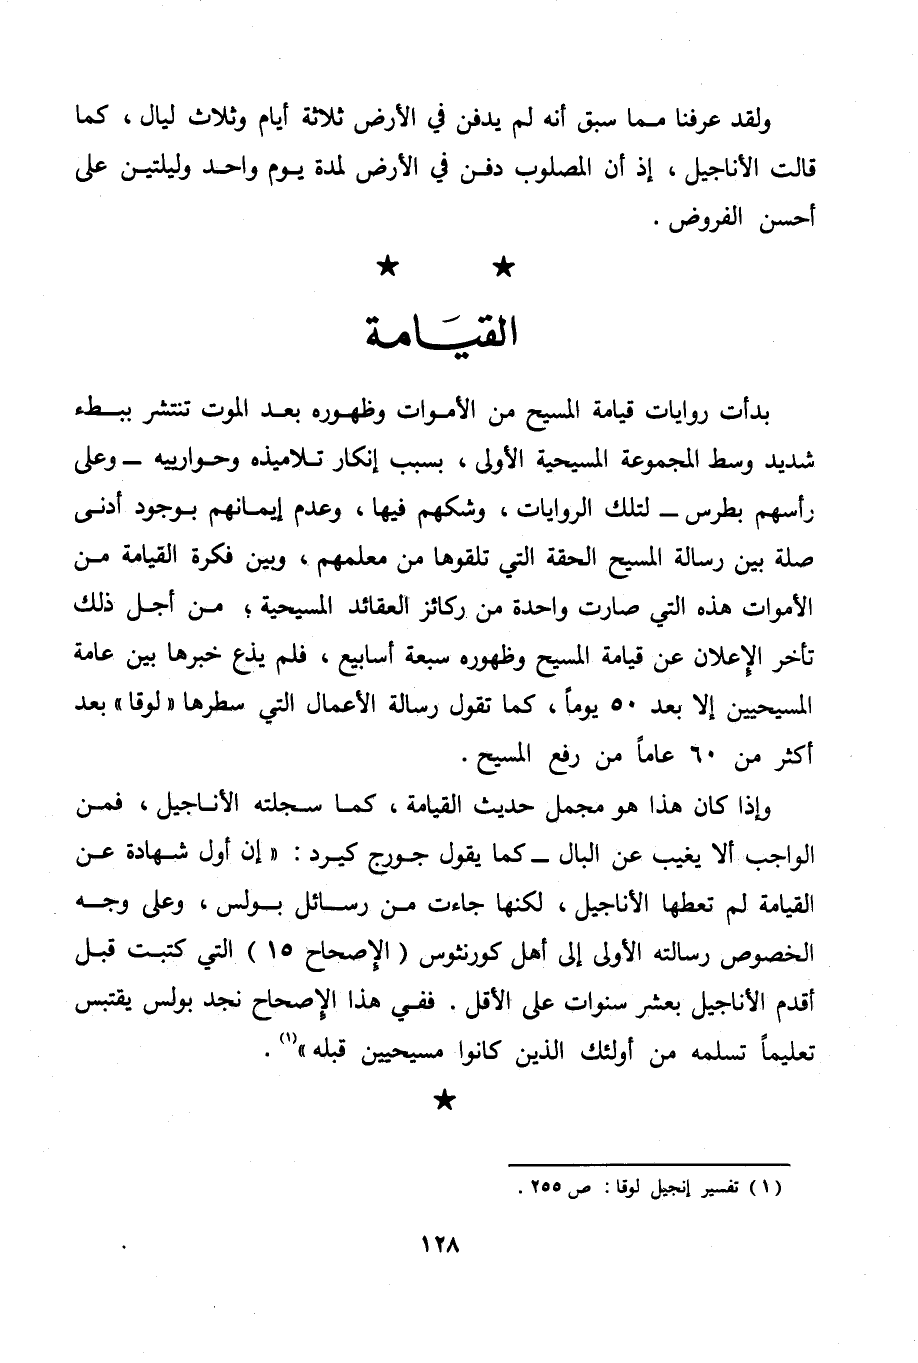 ولقد عرفنا مما سبق أنه لم يدفن في الأرض ثلاثة أيام وثلاث ليال ، كما
قالت الأناجيل ، إذ أن المصلوب دفن في الأرض لمدة يوم واحد وليلتين على
أحسن الفروض .
★ ★
القيَامة
بدأت روايات قيامة المسيح من الأموات وظهوره بعد الموت تنتشر ببطء
شديد وسط المجموعة المسيحية الأولى ، بسبب إنكار تلاميذه وحوارييه – وعلى
رأسهم بطرس – لتلك الروايات ، وشكهم فيها ، وعدم إيمانهم بوجود أدنى
صلة بين رسالة المسيح الحقة التي تلقوها من معلمهم ، وبين فكرة القيامة من
الأموات هذه التي صارت واحدة من ركائز العقائد المسيحية ؛ من أجل ذلك
تأخر الإعلان عن قيامة المسيح وظهوره سبعة أسابيع ، فلم يذع خبرها بين عامة
المسيحيين إلا بعد ٥٠ يوماً ، كما تقول رسالة الأعمال التي سطرها «لوقا» بعد
أكثر من ٦٠ عاماً من رفع المسيح .
وإذا كان هذا هو مجمل حديث القيامة ، كما سجلته الأناجيل ، فمن
الواجب ألا يغيب عن البال – كما يقول جورج كيرد : « إن أول شهادة عن
القيامة لم تعطها الأناجيل ، لكنها جاءت من رسائل بولس ، وعلى وجه
الخصوص رسالته الأولى إلى أهل كورنثوس ( الإصحاح ١٥ ) التي كتبت قبل
أقدم الأناجيل بعشر سنوات على الأقل . ففي هذا الإصحاح نجد بولس يقتبس
تعليماً تسلمه من أولئك الذين كانوا مسيحيين قبله »(١) .
★
(١) تفسير إنجيل لوقا : ص ٢٥٥ .
١٢٨